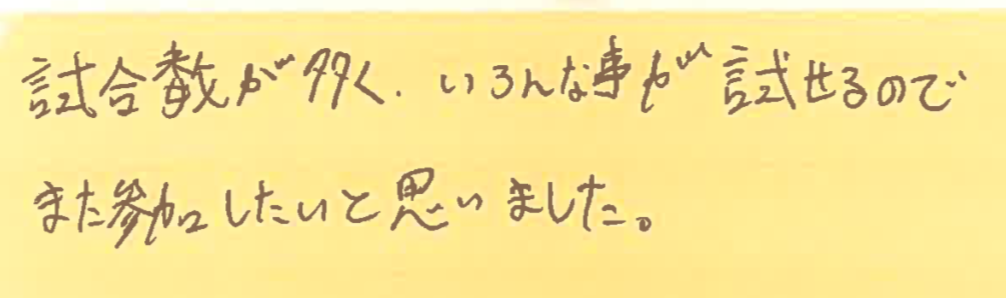 試合数が多く、いろんな事が試せるので
また参加したいと思いました。